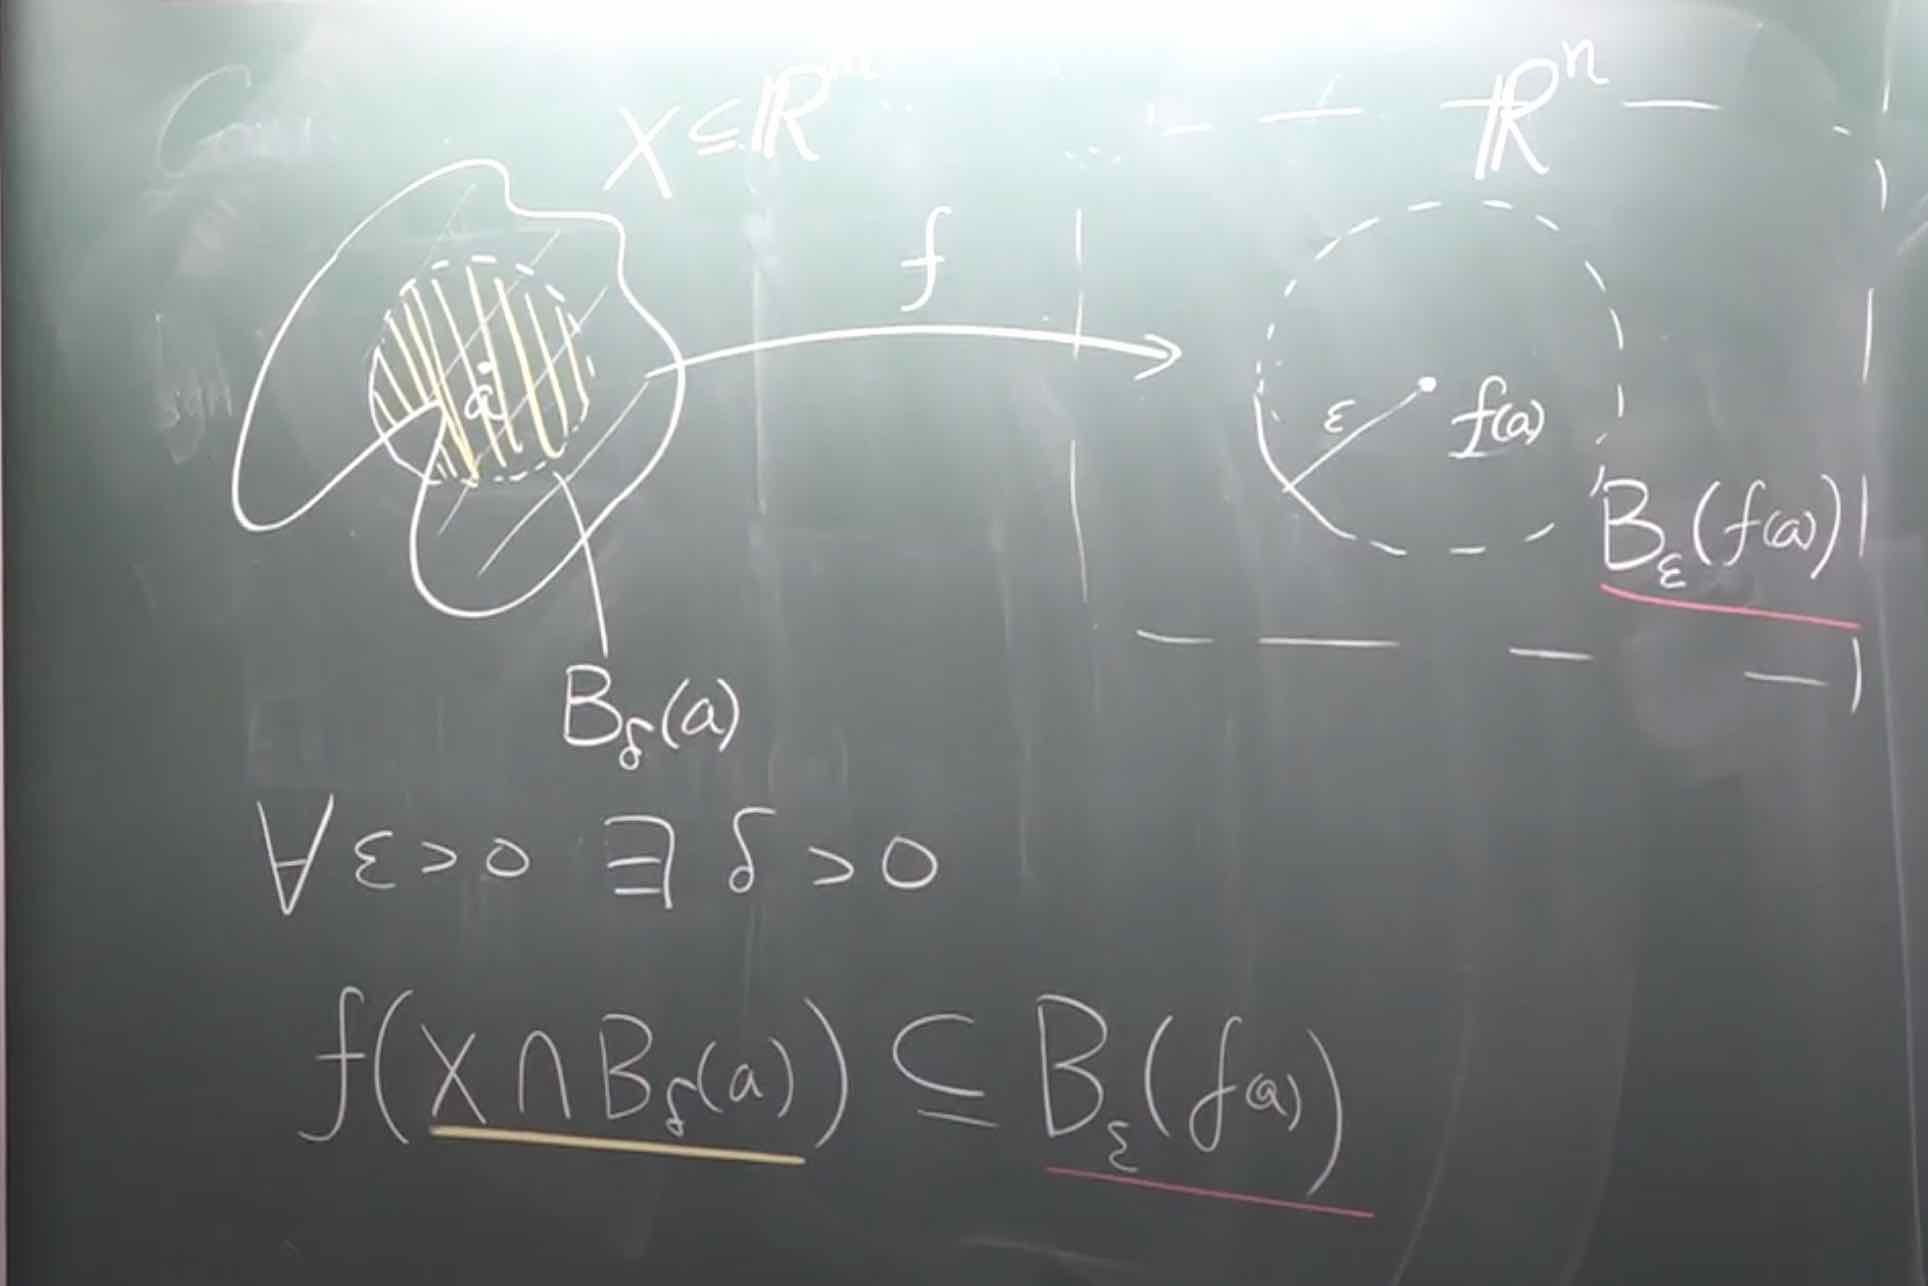 X ⊆ ℝᵐ
ℝⁿ
f
a
ε
f(a)
B_ε(f(a))
B_δ(a)
∀ ε > 0 ∃ δ > 0
f(X ∩ B_δ(a)) ⊆ B_ε(f(a))